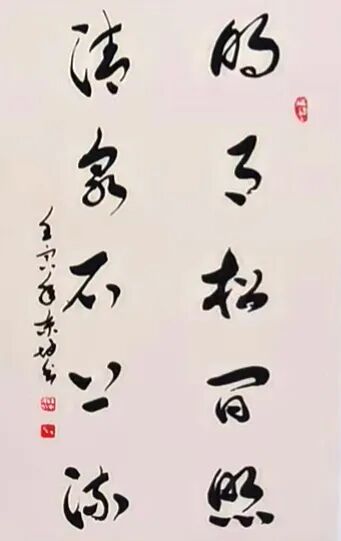 明月松间照
清泉石上流
壬寅年东坤书